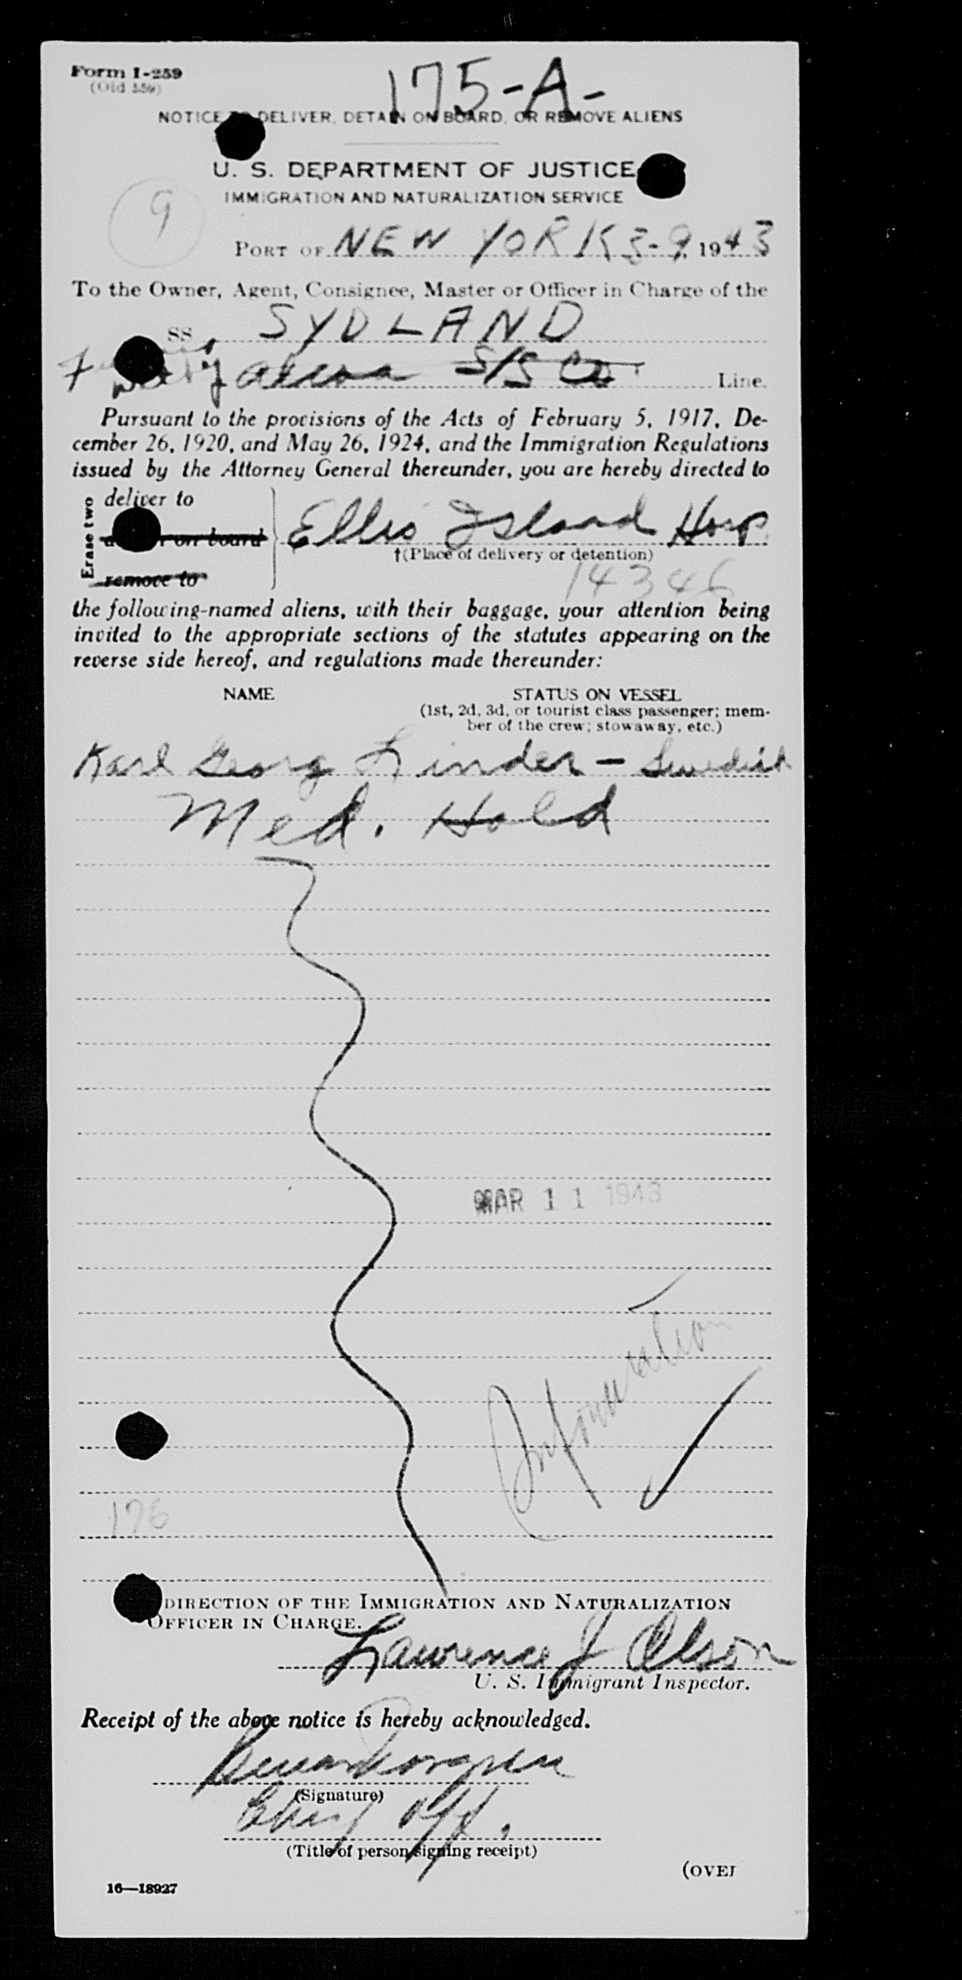 Form I-259
(Old 559)
175-A-
NOTICE TO DELIVER, DETAIN ON BOARD, OR REMOVE ALIENS
U. S. DEPARTMENT OF JUSTICE
IMMIGRATION AND NATURALIZATION SERVICE
9
PORT OF NEW YORK 3-9, 1943
To the Owner, Agent, Consignee, Master or Officer in Charge of the
SS SYDLAND
Alcoa S/S Co. Line.
Pursuant to the provisions of the Acts of February 5, 1917, De-
cember 26, 1920, and May 26, 1924, and the Immigration Regulations
issued by the Attorney General thereunder, you are hereby directed to
Erase two
deliver to
on board
remove to
Ellis Island Hosp.
†(Place of delivery or detention)
14346
the following-named aliens, with their baggage, your attention being
invited to the appropriate sections of the statutes appearing on the
reverse side hereof, and regulations made thereunder:
NAME STATUS ON VESSEL
(1st, 2d, 3d, or tourist class passenger; mem-
ber of the crew; stowaway, etc.)
Karl Georg Linder - Swedish
Med. Hold
MAR 11 1943
Information
176
DIRECTION OF THE IMMIGRATION AND NATURALIZATION
OFFICER IN CHARGE.
Lawrence J Olson
U. S. Immigrant Inspector.
Receipt of the above notice is hereby acknowledged.
(Signature)
Chief Off.
(Title of person signing receipt)
(OVER
16—18927